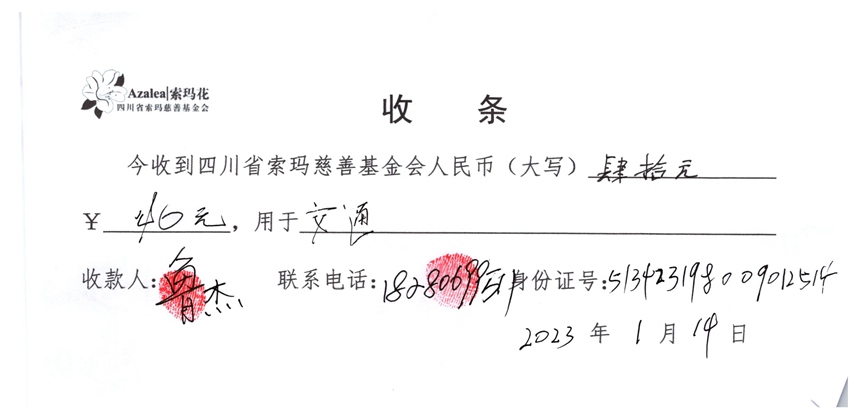 Azalea|索玛花
四川省索玛慈善基金会
收 条
今收到四川省索玛慈善基金会人民币（大写）肆拾元
￥40元，用于交通
收款人：鲁杰 联系电话： 身份证号：513423198009012514
2023年1月14日